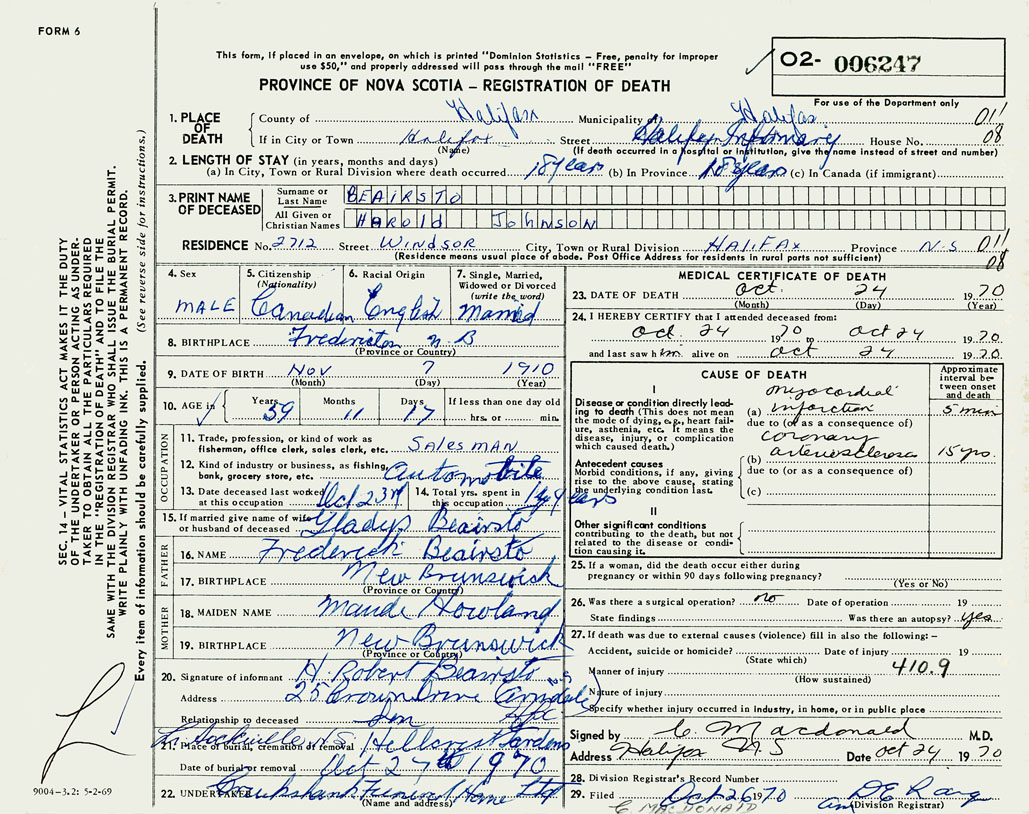 FORM 6
This form, if placed in an envelope, on which is printed "Dominion Statistics - Free, penalty for improper
use $50," and properly addressed will pass through the mail "FREE"
O2- 006247
PROVINCE OF NOVA SCOTIA – REGISTRATION OF DEATH
For use of the Department only
1. PLACE OF DEATH County of Halifax Municipality Halifax 011
If in City or Town Halifax (Name) Street Halifax Infirmary House No. 08
(If death occurred in a hospital or institution, give the name instead of street and number)
2. LENGTH OF STAY (in years, months and days)
(a) In City, Town or Rural Division where death occurred 18 years (b) In Province 18 years (c) In Canada (if immigrant)
3. PRINT NAME OF DECEASED Surname or Last Name BEAIRSTO
All Given or Christian Names HAROLD JOHNSON
RESIDENCE No. 2712 Street WINDSOR City, Town or Rural Division HALIFAX Province N.S 011
(Residence means usual place of abode. Post Office Address for residents in rural parts not sufficient) 08
4. Sex MALE
5. Citizenship (Nationality) Canadian
6. Racial Origin English
7. Single, Married, Widowed or Divorced (write the word) Married
8. BIRTHPLACE Fredericton N.B
(Province or Country)
9. DATE OF BIRTH NOV 7 1910
(Month) (Day) (Year)
10. AGE in Years 59 Months 11 Days 17 If less than one day old hrs. or min.
OCCUPATION
11. Trade, profession, or kind of work as fisherman, office clerk, sales clerk, etc. SALESMAN
12. Kind of industry or business, as fishing, bank, grocery store, etc. Automobile
13. Date deceased last worked at this occupation Oct 23rd
14. Total yrs. spent in this occupation years
15. If married give name of wife or husband of deceased Gladys Beairsto
FATHER
16. NAME Frederick Beairsto
17. BIRTHPLACE New Brunswick
(Province or Country)
MOTHER
18. MAIDEN NAME Maude Howland
19. BIRTHPLACE New Brunswick
(Province or Country)
20. Signature of informant H. Robert Beairsto
Address 25 Crown Drive Armdale N.S
Relationship to deceased Son Hfx
21. Place of burial, cremation or removal L. Sackville N.S. Hillcrest Gardens
Date of burial or removal Oct 27th 1970
22. UNDERTAKER Cruikshank Funeral Home Ltd
(Name and address)
MEDICAL CERTIFICATE OF DEATH
23. DATE OF DEATH Oct. 24 1970
(Month) (Day) (Year)
24. I HEREBY CERTIFY that I attended deceased from:
Oct. 24 1970 to Oct 24 1970
and last saw him alive on Oct 24 1970
CAUSE OF DEATH
Approximate interval between onset and death
I
Disease or condition directly leading to death (This does not mean the mode of dying, e.g., heart failure, asthenia, etc. It means the disease, injury, or complication which caused death.)
(a) myocordial infarction 5 min
due to (or as a consequence of)
Antecedent causes
Morbid conditions, if any, giving rise to the above cause, stating the underlying condition last.
(b) coronary arterosclerosis 15 yrs.
due to (or as a consequence of)
(c)
II
Other significant conditions contributing to the death, but not related to the disease or condition causing it.
25. If a woman, did the death occur either during pregnancy or within 90 days following pregnancy?
(Yes or No)
26. Was there a surgical operation? no Date of operation 19
State findings Was there an autopsy? yes
27. If death was due to external causes (violence) fill in also the following:–
Accident, suicide or homicide? Date of injury 19
(State which)
Manner of injury 410.9
(How sustained)
Nature of injury
Specify whether injury occurred in industry, in home, or in public place
Signed by C. Macdonald M.D.
Address Halifax N.S Date Oct 24 1970
28. Division Registrar's Record Number
29. Filed Oct 26 1970
(Division Registrar)
C. MACDONALD
SEC. 14 – VITAL STATISTICS ACT MAKES IT THE DUTY
OF THE UNDERTAKER OR PERSON ACTING AS UNDER-
TAKER TO OBTAIN ALL THE PARTICULARS REQUIRED
IN THE "REGISTRATION OF DEATH" AND TO FILE THE
SAME WITH THE DIVISION REGISTRAR WHO SHALL ISSUE THE BURIAL PERMIT.
WRITE PLAINLY WITH UNFADING INK. THIS IS A PERMANENT RECORD.
Every item of information should be carefully supplied. (See reverse side for instructions.)
9004-3.2: 5-2-69